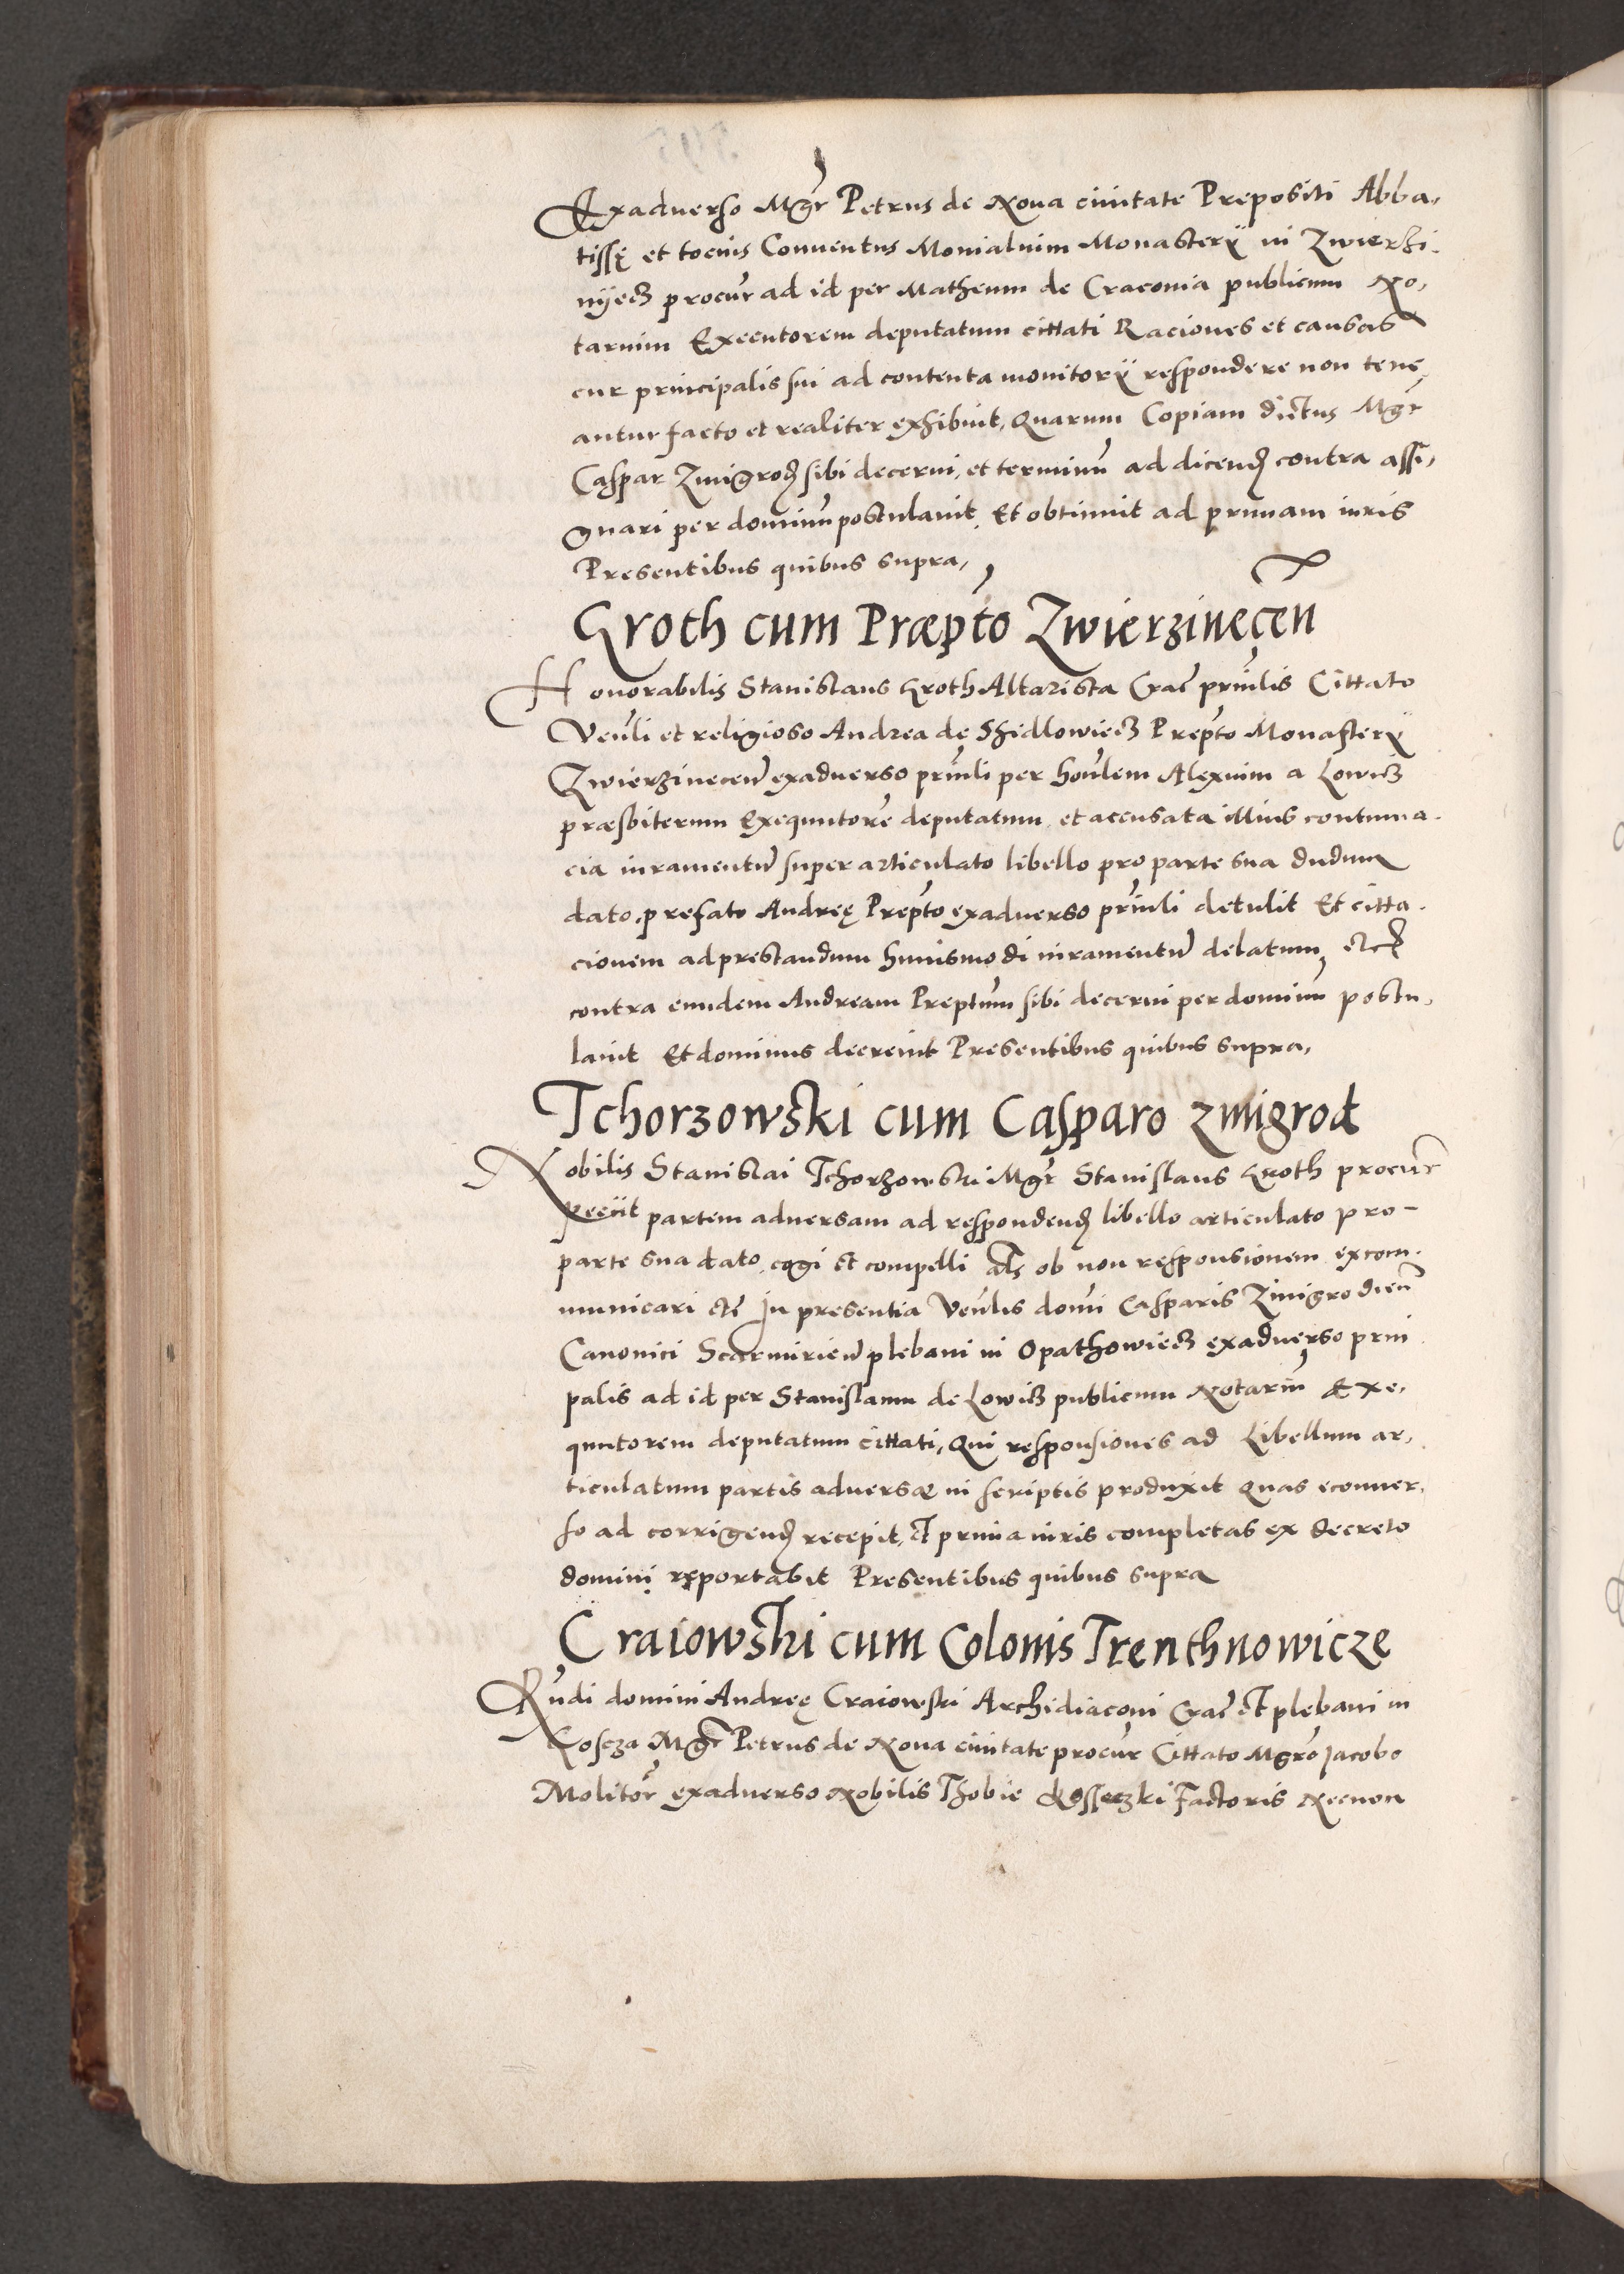 Exaduerso Mgr Petrus de Noua ciuitate Prepositi Abba,
tissę et tocius Conuentus Monialium Monasterÿ in Zwierzi.
nÿecz procur ad id per Matheum de Craconia publicum No,
tarium Executorem deputatum cittati Raciones et causas
cur principalis sui ad contenta monitorÿ respondere non tene,
antur facto et realiter exhibuit, Quarum Copiam dictus Mgr
Caspar Zmigrod sibi decerni, et terminu ad dicend contra assi,
gnari per dominu postulauit, Et obtinuit ad primam iuris
Presentibus quibus supra,
Groth cum Præpto Zwierzinecen
Honorabilis Stanislaus Groth Altarista Crac prinlis Cittato
Venli et religioso Andrea de Shidlowiecz Prepto Monasterÿ
Zwierzinecen exaduerso prinli per honlem Alexium a Lowicz
præsbiterum Exequutore deputatum, et accusata illius contuma.
cia iuramentu super articulato libello pro parte sua dudum
dato, prefato Andreę Prepto exaduerso prinli detulit Et citta.
cionem ad prestandum huiusmodi iuramentu delatum, etc
contra eundem Andream Preptum sibi decerni per dominu postu,
lauit Et dominus decreuit Presentibus quibus supra,
Tchorzowski cum Casparo Zmigrod
Nobilis Stanislai Tchorzowski Mgr Stanislaus Groth procur
peciit partem aduersam ad respondend libello articulato pro-
parte sua dato, cogi et compelli als ob non responsionem excom.
municari etc In presentia Venlis domi Casparis Zmigrodien
Canonici Scarmirien plebani in Opathowiecz exaduerso prni
palis ad id per Stanislaum de Lowicz publicum Notariu Exe,
quutorem deputatum cittati, Qui responsiones ad Libellum ar,
ticulatum partis aduersæ in scriptis produxit Quas econuer,
so ad corrigend recepit, et prima iuris completas ex decreto
domini reportabit Presentibus quibus supra
Craiowski cum Colonis Trenthnowicze
Rndi domini Andreę Craiowski Archidiaconi Crac et plebani in
Coscza Mgr Petrus de Noua ciuitate procur Cittato Mgro Jacobo
Molitor exaduerso Nobilis Thobie Factoris Necnon